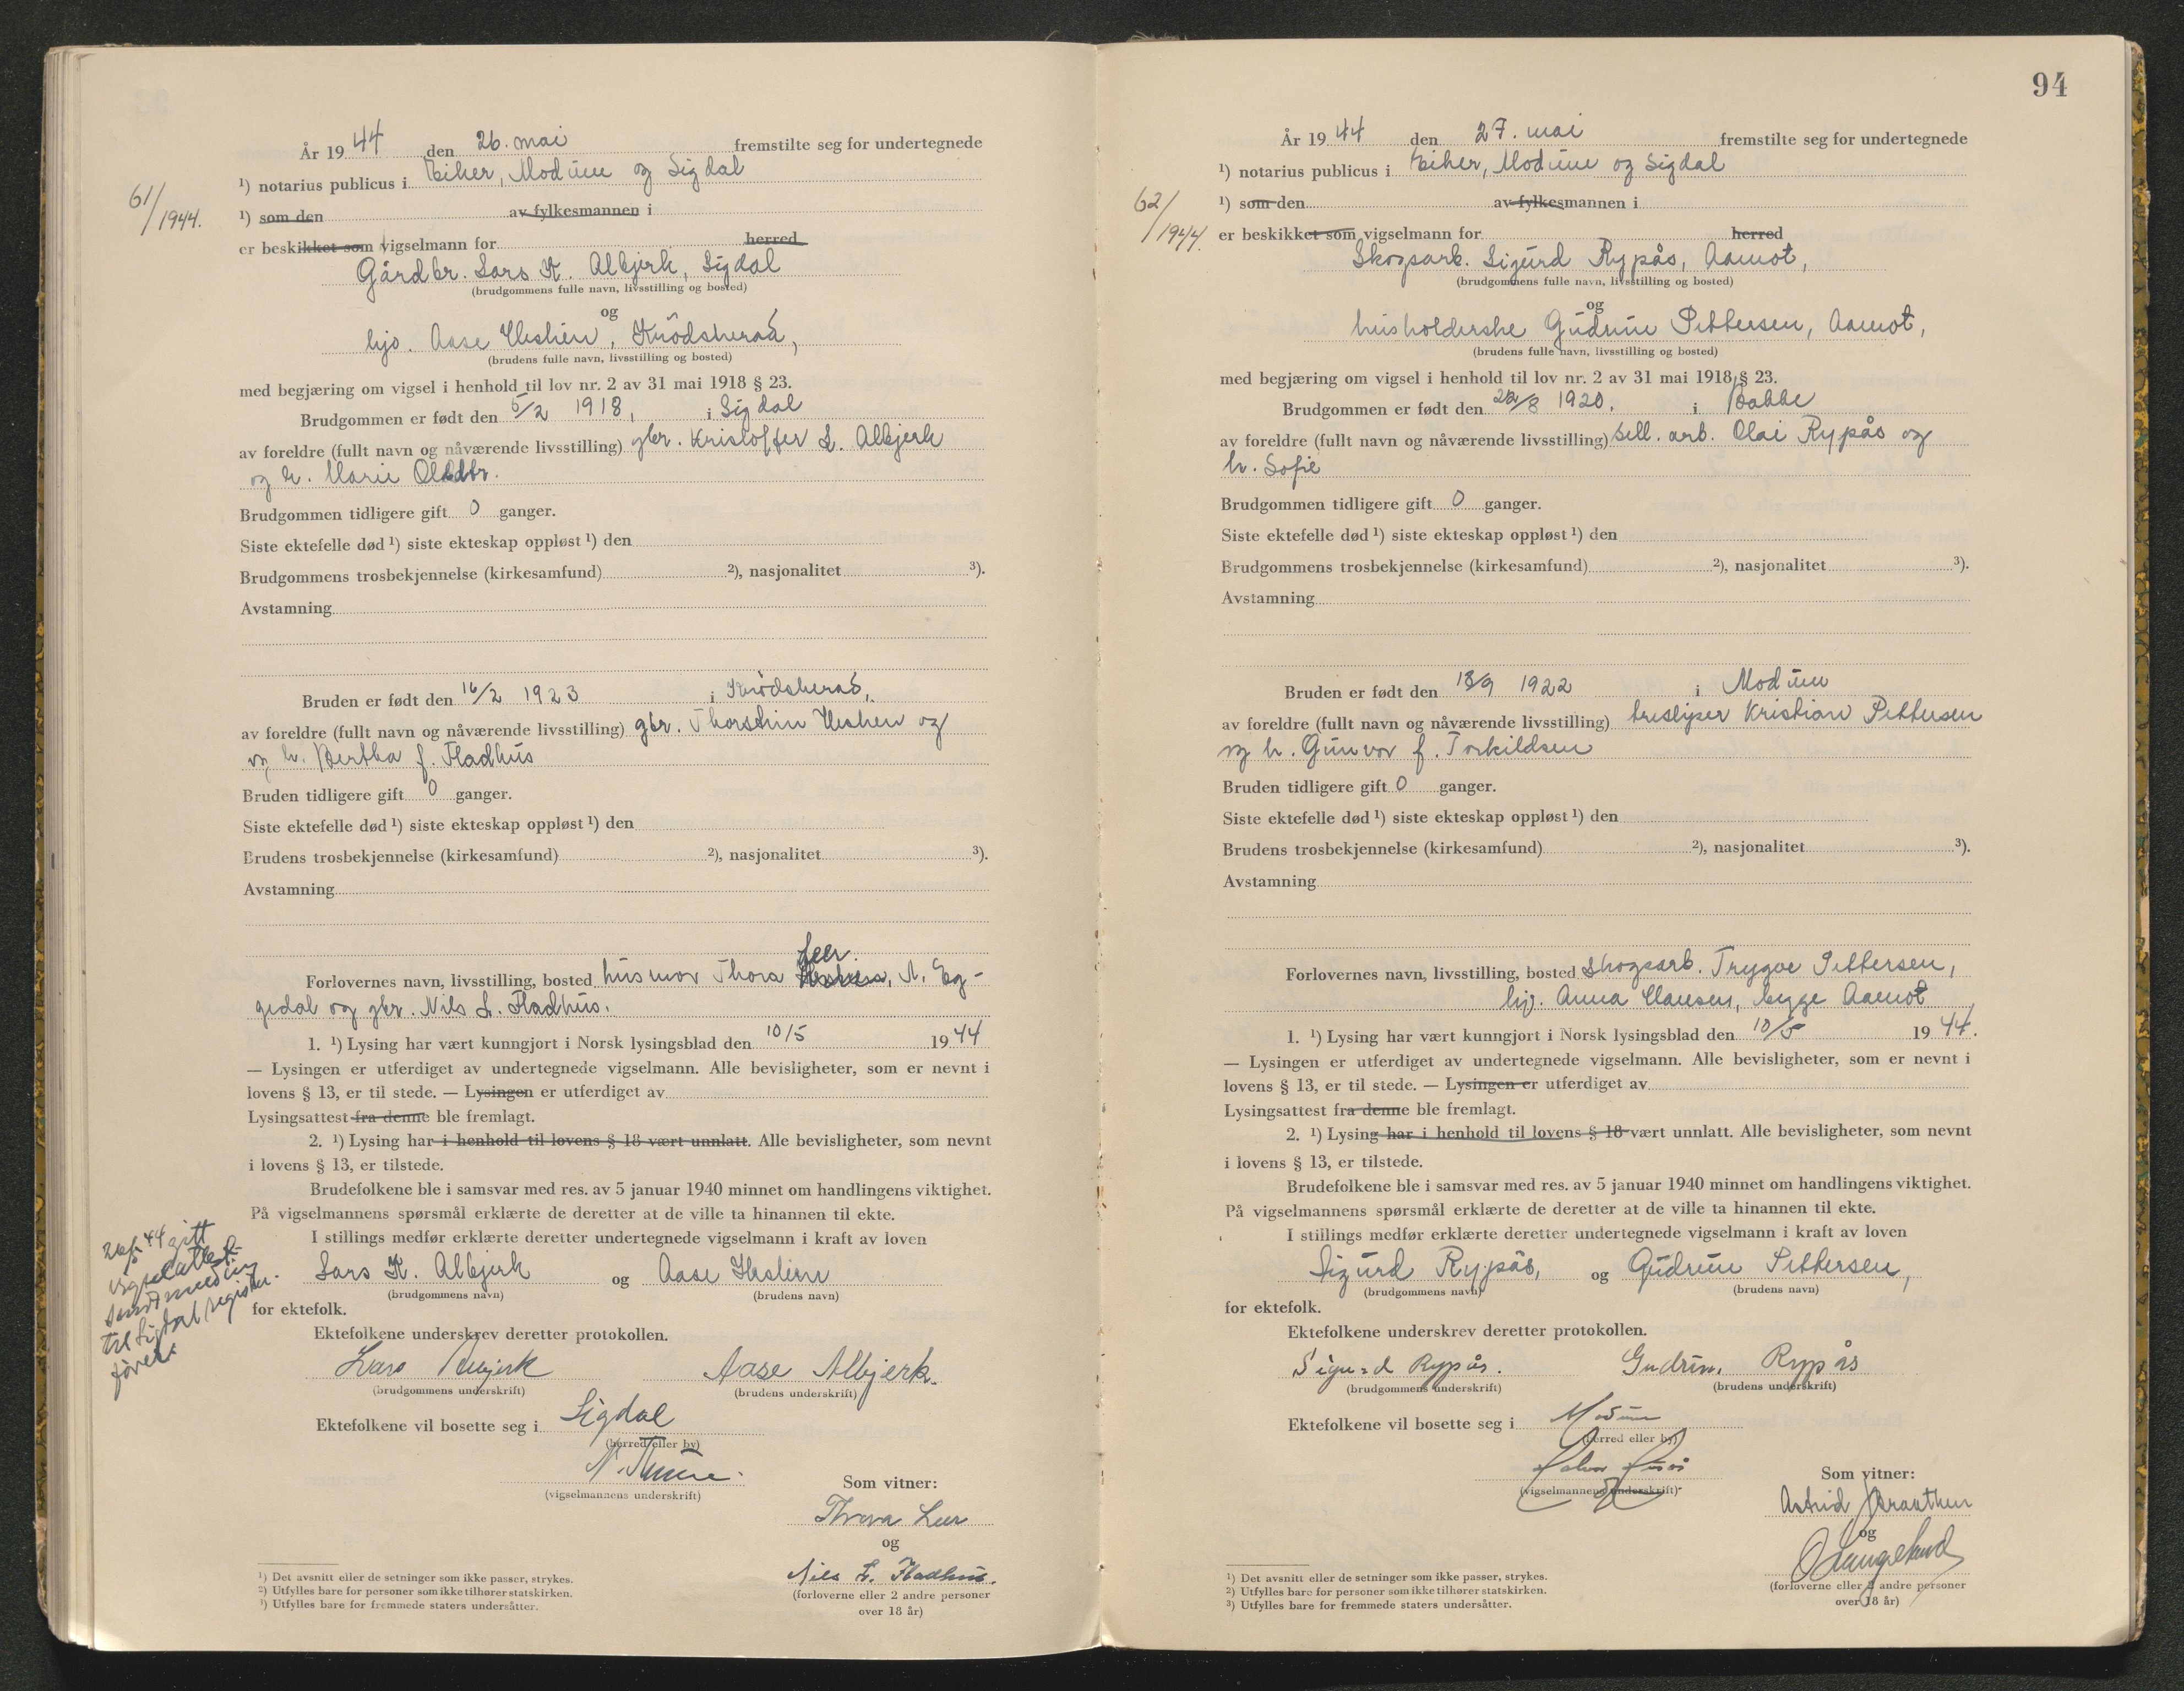 År 1944 den 26. mai fremstilte seg for undertegnede
¹) notarius publicus i Eiker, Modum og Sigdal
61/1944.
¹) som den av fylkesmannen i
er beskikket som vigselmann for herred
Gårdbr. Lars K. Albjerk, Sigdal
(brudgommens fulle navn, livsstilling og bosted)
og
hjv. Aase Heslien, Krödsherad,
(brudens fulle navn, livsstilling og bosted)
med begjæring om vigsel i henhold til lov nr. 2 av 31 mai 1918 § 23.
Brudgommen er født den 5/2 1918, i Sigdal
av foreldre (fullt navn og nåværende livsstilling) gbr. Kristoffer L. Albjerk
og h. Marie
Brudgommen tidligere gift 0 ganger.
Siste ektefelle død ¹) siste ekteskap oppløst ¹) den
Brudgommens trosbekjennelse (kirkesamfund) ²), nasjonalitet ³).
Avstamning
Bruden er født den 16/2 1923 i Krödsherad,
av foreldre (fullt navn og nåværende livsstilling) gbr. Thorstein Heslien og
og h. Bertha f. Fladhus
Bruden tidligere gift 0 ganger.
Siste ektefelle død ¹) siste ekteskap oppløst ¹) den
Brudens trosbekjennelse (kirkesamfund) ²), nasjonalitet ³).
Avstamning
Leer.
Forlovernes navn, livsstilling, bosted husmor Thora Heslien, N. Eg-
gedal og gbr. Nils L. Fladhus.
1. ¹) Lysing har vært kunngjort i Norsk lysingsblad den 10/5 1944
— Lysingen er utferdiget av undertegnede vigselmann. Alle bevisligheter, som er nevnt i
lovens § 13, er til stede. — Lysingen er utferdiget av
Lysingsattest fra denne ble fremlagt.
2. ¹) Lysing har i henhold til lovens § 18 vært unnlatt. Alle bevisligheter, som nevnt
i lovens § 13, er tilstede.
Brudefolkene ble i samsvar med res. av 5 januar 1940 minnet om handlingens viktighet.
På vigselmannens spørsmål erklærte de deretter at de ville ta hinannen til ekte.
I stillings medfør erklærte deretter undertegnede vigselmann i kraft av loven
26/5 44 gitt
vigselattest
send melding
til Sigdal register
fører.
Lars K. Albjerk og Aase Heslien
(brudgommens navn) (brudens navn)
for ektefolk.
Ektefolkene underskrev deretter protokollen.
Lars Albjerk Aase Albjerk.
(brudgommens underskrift) (brudens underskrift)
Ektefolkene vil bosette seg i Sigdal
(herred eller by)
(vigselmannens underskrift)
Som vitner:
Thora Leer
og
Nils L. Fladhus.
(forloverne eller 2 andre personer
over 18 år)
¹) Det avsnitt eller de setninger som ikke passer, strykes.
²) Utfylles bare for personer som ikke tilhører statskirken.
³) Utfylles bare for fremmede staters undersåtter.
94
År 1944 den 27. mai fremstilte seg for undertegnede
¹) notarius publicus i Eiker, Modum og Sigdal
62/1944.
¹) som den av fylkesmannen i
er beskikket som vigselmann for herred
Skogsarb. Sigurd Rypås, Aamot,
(brudgommens fulle navn, livsstilling og bosted)
og
husholderske Gudrun Pettersen, Aamot,
(brudens fulle navn, livsstilling og bosted)
med begjæring om vigsel i henhold til lov nr. 2 av 31 mai 1918 § 23.
Brudgommen er født den 22/8 1920. i Bakke
av foreldre (fullt navn og nåværende livsstilling) sell. arb. Olai Rypås og
h. Sofie
Brudgommen tidligere gift 0 ganger.
Siste ektefelle død ¹) siste ekteskap oppløst ¹) den
Brudgommens trosbekjennelse (kirkesamfund) ²), nasjonalitet ³).
Avstamning
Bruden er født den 13/9 1922 i Modum
av foreldre (fullt navn og nåværende livsstilling) tresliper Kristian Pettersen
og h. Gunvor f. Torkildsen
Bruden tidligere gift 0 ganger.
Siste ektefelle død ¹) siste ekteskap oppløst ¹) den
Brudens trosbekjennelse (kirkesamfund) ²), nasjonalitet ³).
Avstamning
Forlovernes navn, livsstilling, bosted Skogsarb. Trygve Pettersen,
hjv. Anna Hansen, begge Aamot
1. ¹) Lysing har vært kunngjort i Norsk lysingsblad den 10/5 1944.
— Lysingen er utferdiget av undertegnede vigselmann. Alle bevisligheter, som er nevnt i
lovens § 13, er til stede. — Lysingen er utferdiget av
Lysingsattest fra denne ble fremlagt.
2. ¹) Lysing har i henhold til lovens § 18 vært unnlatt. Alle bevisligheter, som nevnt
i lovens § 13, er tilstede.
Brudefolkene ble i samsvar med res. av 5 januar 1940 minnet om handlingens viktighet.
På vigselmannens spørsmål erklærte de deretter at de ville ta hinannen til ekte.
I stillings medfør erklærte deretter undertegnede vigselmann i kraft av loven
Sigurd Rypås, og Gudrun Pettersen,
(brudgommens navn) (brudens navn)
for ektefolk.
Ektefolkene underskrev deretter protokollen.
Sigurd Rypås. Gudrun Rypås
(brudgommens underskrift) (brudens underskrift)
Ektefolkene vil bosette seg i Modum
(herred eller by)
(vigselmannens underskrift)
Som vitner:
Astrid Braathen
og
O Langeland
(forloverne eller 2 andre personer
over 18 år)
¹) Det avsnitt eller de setninger som ikke passer, strykes.
²) Utfylles bare for personer som ikke tilhører statskirken.
³) Utfylles bare for fremmede staters undersåtter.